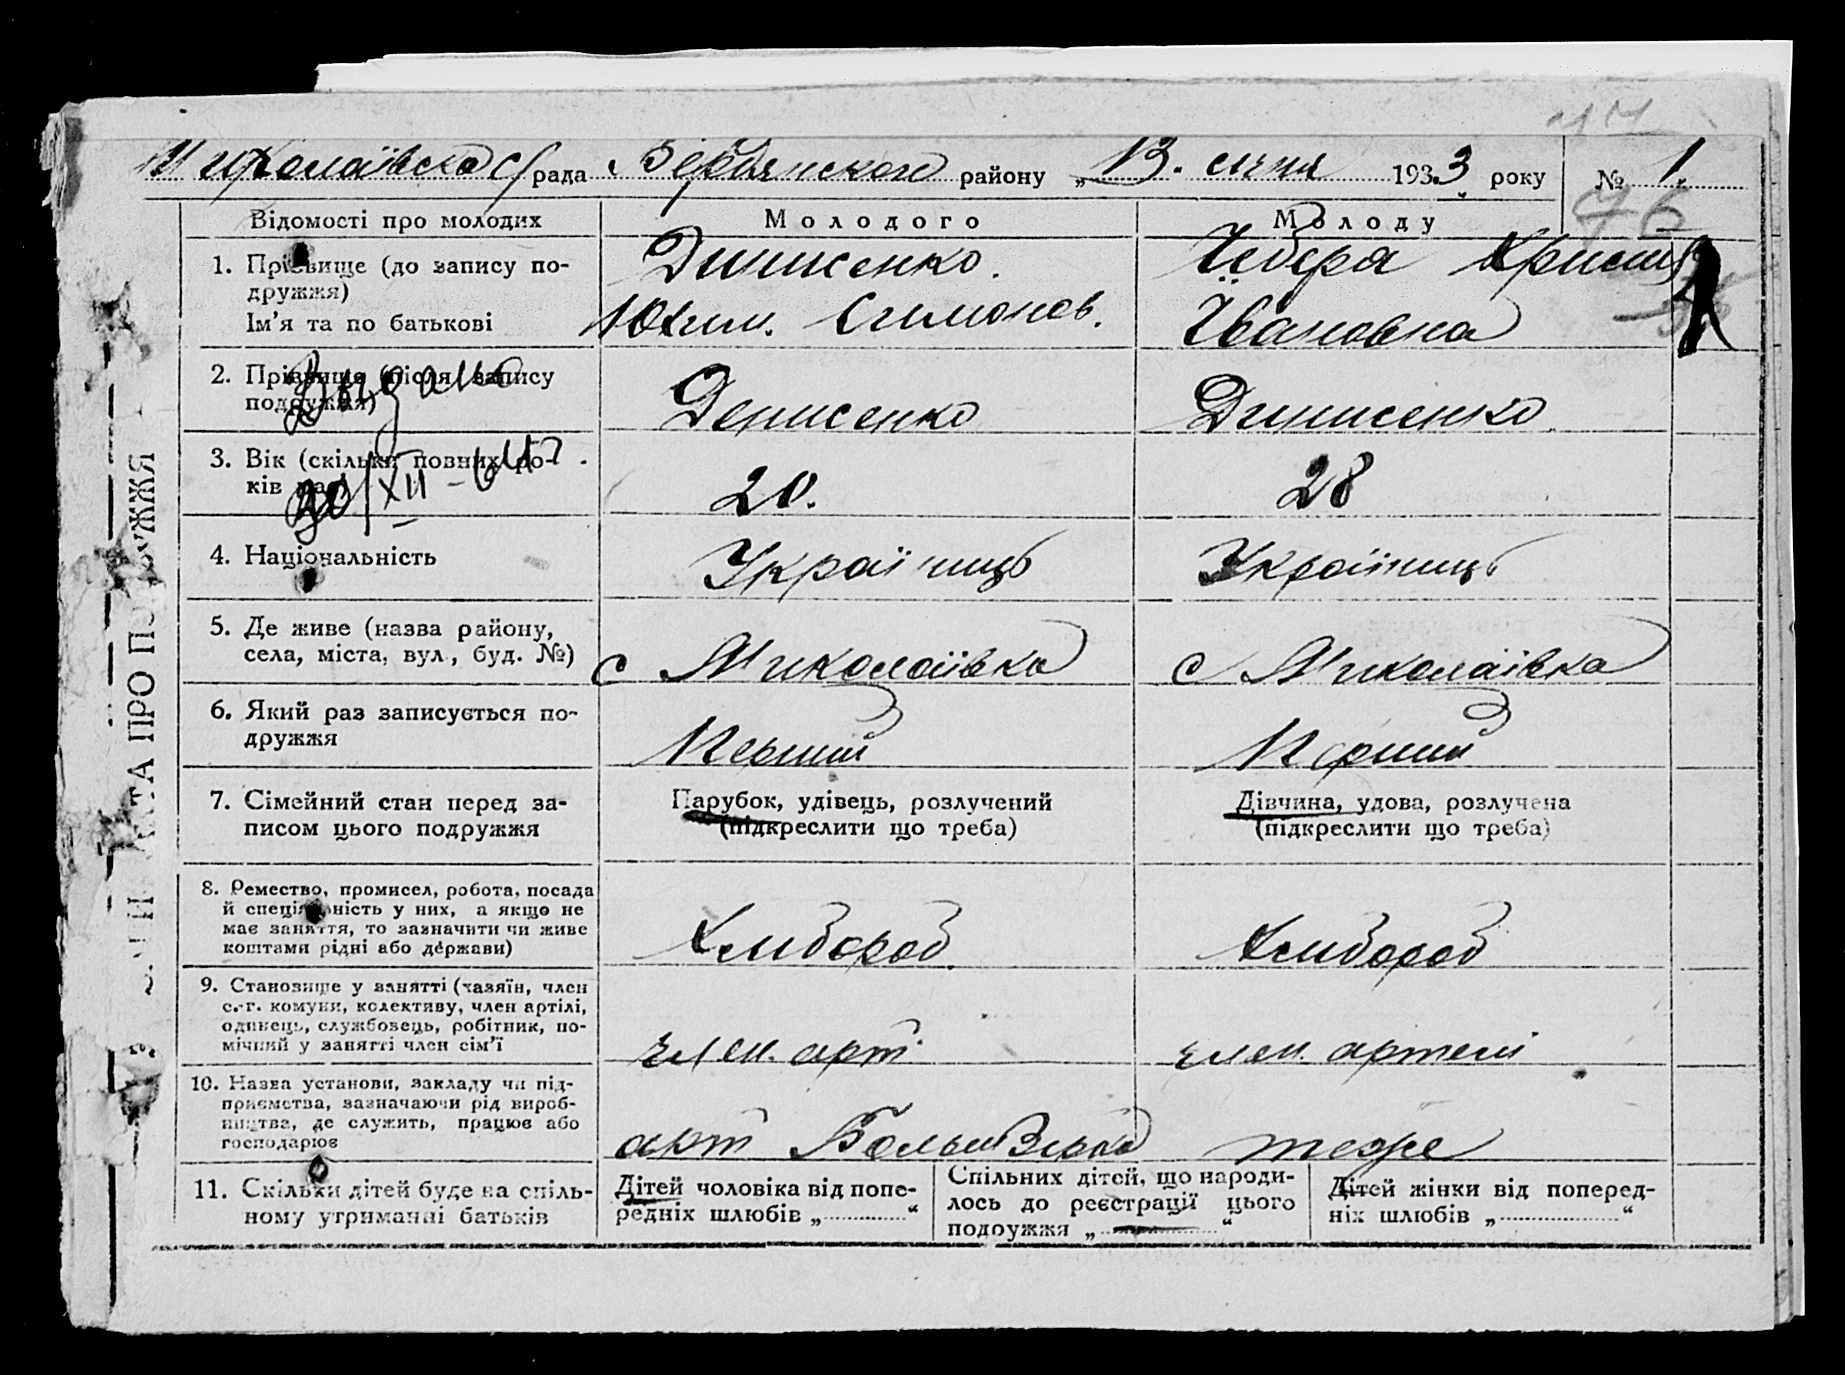 Миколаївська с/рада Бердянского району „13. січня 1933 року № 1.
76
Відомості про молодих Молодого Молоду
1. Прізвище (до запису по-
дружжя)
Ім'я та по батькові
Динисенко.
Юхим. Симонов.
Чебера Христя
Івановна
2. Прізвище (після запису
подружжя)
Денисенко Динисенко
Выдано
3. Вік (скільки повних ро-
ків має)
20. 28
30/XII-64
4. Національність Українець Українець
5. Де живе (назва району,
села, міста, вул., буд. №)
с Миколаївка с Миколаівка
6. Який раз записується по-
дружжя
Перший Перший
7. Сімейний стан перед за-
писом цього подружжя
Парубок, удівець, розлучений
(підкреслити що треба)
Дівчина, удова, розлучена
(підкреслити що треба)
8. Ремество, промисел, робота, посада
й спеціяльність у них, а якщо не
має заняття, то зазначити чи живе
коштами рідні або держави)
Хлибороб. Хлибороб
9. Становище у занятті (хазяїн, член
с.-г. комуни, колективу, член артілі,
одинець, службовець, робітник, по-
мічний у занятті член сім'ї
член. арт. член. артелі
10. Назва установи, закладу чи під-
приємства, зазначаючи рід вироб-
ництва, де служить, працює або
господарює
арт тоже
11. Скільки дітей буде на спіль-
ному утриманні батьків
Дітей чоловіка від попе-
редніх шлюбів „ “
Спільних дітей, що народи-
лось до реєстрації цього
подружжя „ — “
Дітей жінки від поперед-
ніх шлюбів „ “
АКТА ПРО ПОДРУЖЖЯ